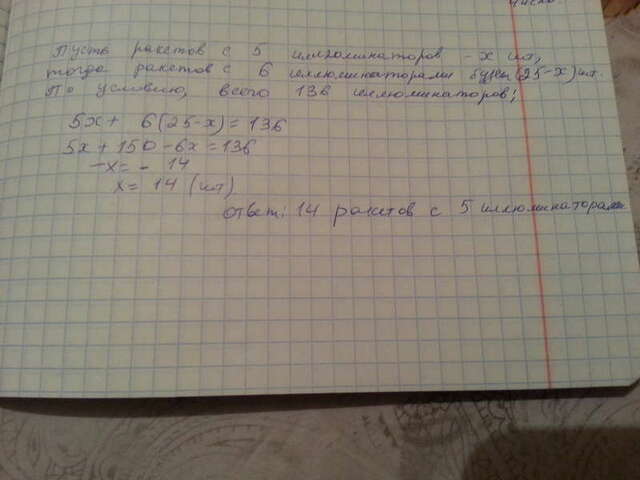 число.
Пусть ракетов с 5 иллюминаторов - х шт,
тогда ракетов с 6 иллюминаторами будет (25-х) шт.
По условию, всего 136 иллюминаторов;
5х + 6(25-х) = 136
5х + 150 - 6х = 136
-х = - 14
х = 14 (шт)
ответ: 14 ракетов с 5 иллюминаторами